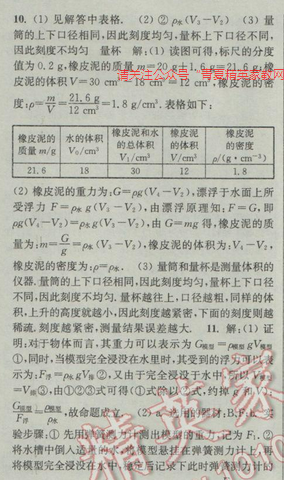 10. (1) 见解答中表格. (2) ② ρ水(V₃-V₂) (3) 量
筒的上下口径相同,因此刻度均匀,量杯上下口径不同,
因此刻度不均匀 量杯 解:(1) 读图可得,标尺的分度
值为 0.2 g,橡皮泥的质量 m=20 g+1.6 g=21.6 g;橡
皮泥的体积 V=30 cm³-18 cm³=12 cm³,橡皮泥的密
度:ρ=m/V=21.6 g/12 cm³=1.8 g/cm³.表格如下:
橡皮泥的质量 m/g 水的体积 V₀/cm³ 橡皮泥和水的总体积 V₁/cm³ 橡皮泥的体积 V/cm³ 橡皮泥的密度 ρ/(g·cm⁻³)
21.6 18 30 12 1.8
(2) 橡皮泥的重力为:G=ρg(V₄-V₂),漂浮于水面上所
受浮力 F=ρ水g(V₃-V₂),由漂浮原理知:F=G,即
ρg(V₄-V₂)=ρ水g(V₃-V₂),由 G=mg 得,橡皮泥的质
量为:m=G/g=ρ水(V₃-V₂),橡皮泥的体积为:V₄-V₂,
橡皮泥的密度为:ρ=ρ水. (3) 量筒和量杯是测量体积的
仪器.量筒的上下口径相同,因此刻度均匀,量杯上下口径
不同,因此刻度不均匀.量杯越往上,口径越粗,同样的体
积,上升的高度就越小,因此刻度越紧密,下面的刻度则越
稀疏.刻度越紧密,测量结果误差越大. 11. 解:(1) 证
明:对于物体而言,其重力可以表示为 G模型=ρ模型gV模型
①,同时,当模型完全浸没在水里时,其受到的浮力可以表
示为:F浮=ρ水gV排②,又由于完全浸于水中,所以 V模型
=V排③,由①②③式可得①式除以②式,约掉 g 和
G模型/F浮=ρ模型/ρ水,故命题成立. (2) A. 选用的器材:B;F;E 实
验步骤:① 先用弹簧测力计测出模型的重力,记为 F₁.②
将水槽中倒入适量的水,将模型悬挂在弹簧测力计上,再
将模型完全浸没在水中,稳定后记录下此时弹簧测力计的